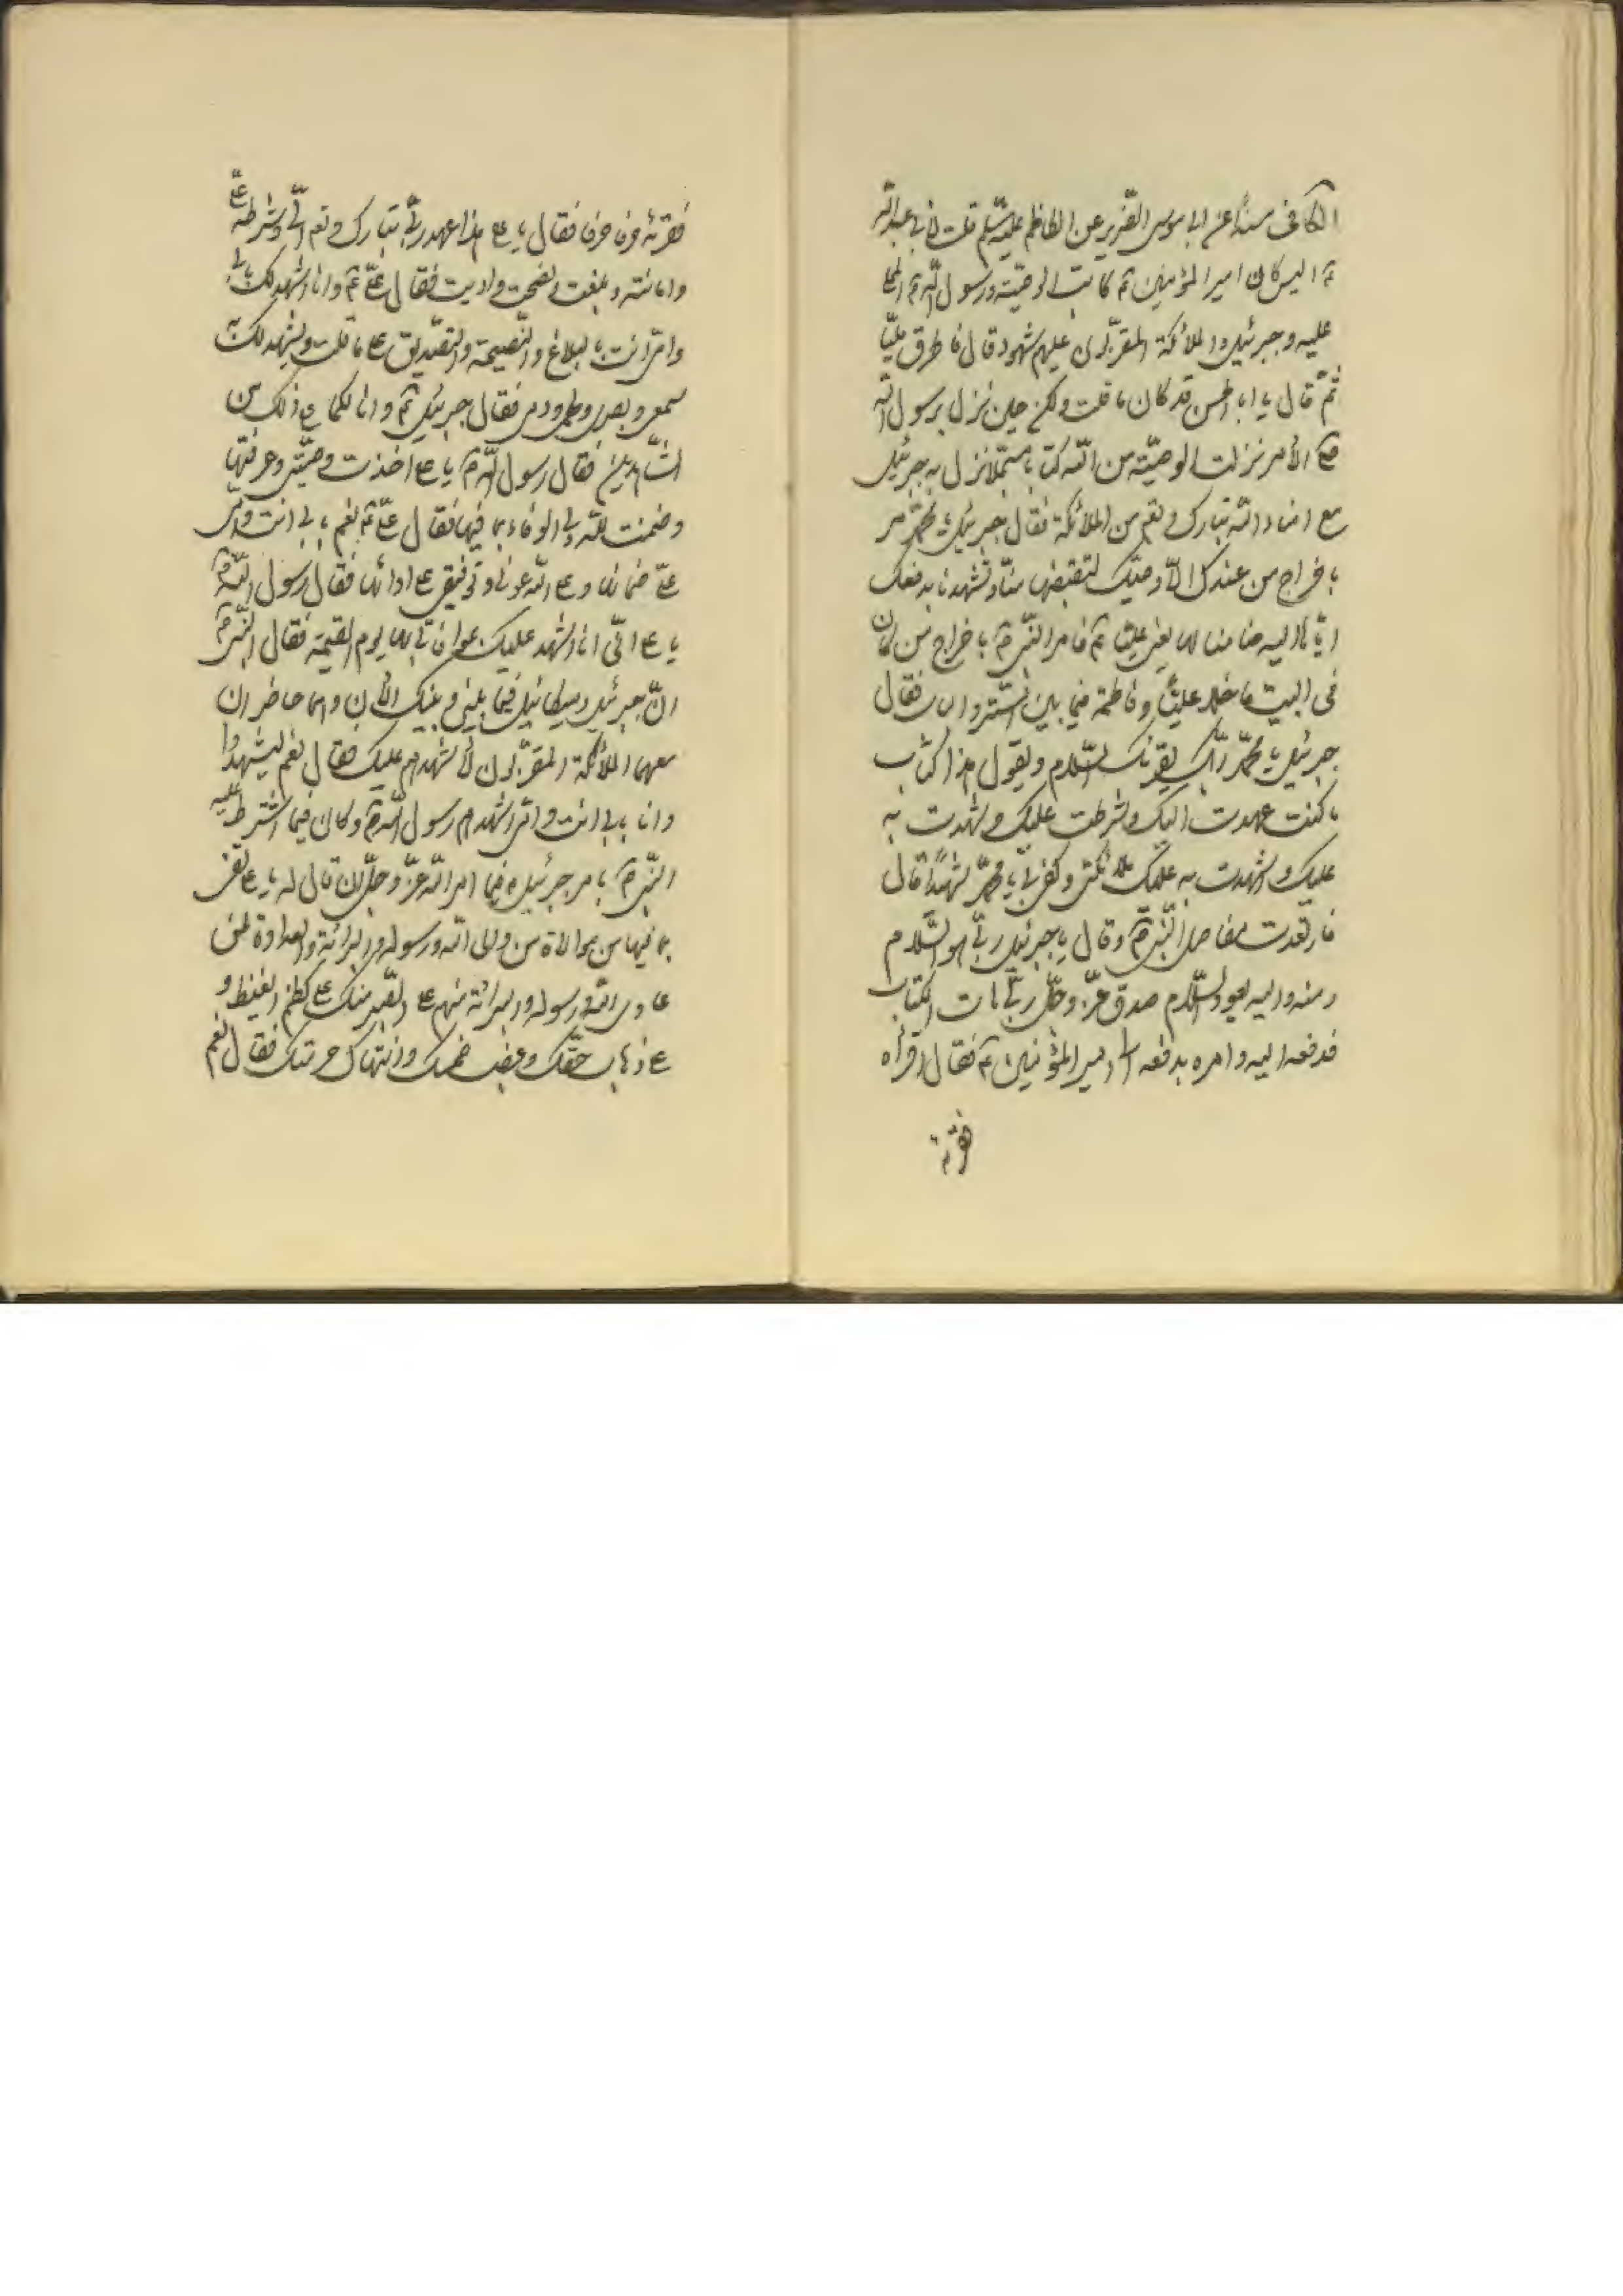 الكافی مسنداً عن ابی موسی الضریر عن الكاظم علیه السلم قلت لابی عبدالله
ع الیس كان امیر المؤمنین ع كاتب الوصیّة ورسول اللّه ص المملی
علیه وجبرئیل والملائكة المقرّبون علیهم شهود قال فاطرق ملیّاً
ثمّ قال یا ابا الحسن قد كان ما قلت ولكن حین نزل برسول الله
ص الأمر نزلت الوصیّة من اللّه كتابا مسجّلا نزل به جبرئیل
مع امناء اللّه تبارك وتعم من الملائكة فقال جبرئیل یا محمّد مر
باخراج من عندك الاّ وصیّك لتقبضها منّا وتشهدنا بدفعك
ایّاها الیه ضامنا لها یعنی علیّا ع فامر النّبی ص باخراج من كان
فی البیت ما خلا علیّاً وفاطمة فیما بین السّتر والباب فقال
جبرئیل یا محمّد ربّك یقرئك السّلام ویقول هذا كتاب
ما كنت عهدت الیك وشرطت علیك وشهدت به
علیك واشهدت به علیك ملائكتی وكفی بی یا محمّد شهیداً قال
فارتعدت مفاصل النّبی ص وقال یا جبرئیل ربّی هو السّلام
ومنه والیه یعود السّلام صدق عزّ وجلّ وبرّ هات الكتاب
فدفعه الیه وامره بدفعه الی امیر المؤمنین ع فقال اقرأه
فقرئه
فقرئه حرفا حرفا فقال یا علی هذا عهد ربّی تبارك وتعم الیّ وشرطه علیّ
وامانته وبلغت ونصحت وادیت فقال علیّ ع وانا اشهد لك بابی
وامّی انت بالبلاغ والنّصیحة والتّصدیق علی ما قلت ویشهد لك به
سمعی وبصری ولحمی ودمی فقال جبرئیل ع وانا لكما علی ذلك من
الشّاهدین فقال رسول اللّه ص یا علی اخذت وصیّتی وعرفتها
وضمنت للّه ولی الوفاء بما فیها فقال علیّ ع نعم بابی انت وامّی
علیّ ضمانها وعلی اللّه عونی وتوفیقی علی ادائها فقال رسول اللّه ص
یا علی انّی ارید ان اشهد علیك بموافاتی بها یوم القیمة فقال النّبی ص
انّ جبرئیل ومیكائیل فیما بینی وبینك الآن وهما حاضران
معهما الملائكة المقرّبون لأشهدهم علیك فقال نعم لیشهدوا
وانا بابی انت وامّی اشهدهم رسول اللّه ص وكان فیما اشترط علیه
النّبی ص بامر جبرئیل ع فیما امر اللّه عزّ وجلّ ان قال له یا علی تفی
بما فیها من موالاة من والی اللّه ورسوله والبرائة والعداوة لمن
عادی اللّه ورسوله والبرائة منهم علی الصّبر منك علی كظم الغیظ و
علی ذهاب حقّك وغصب خمسك وانتهاك حرمتك فقال نعم